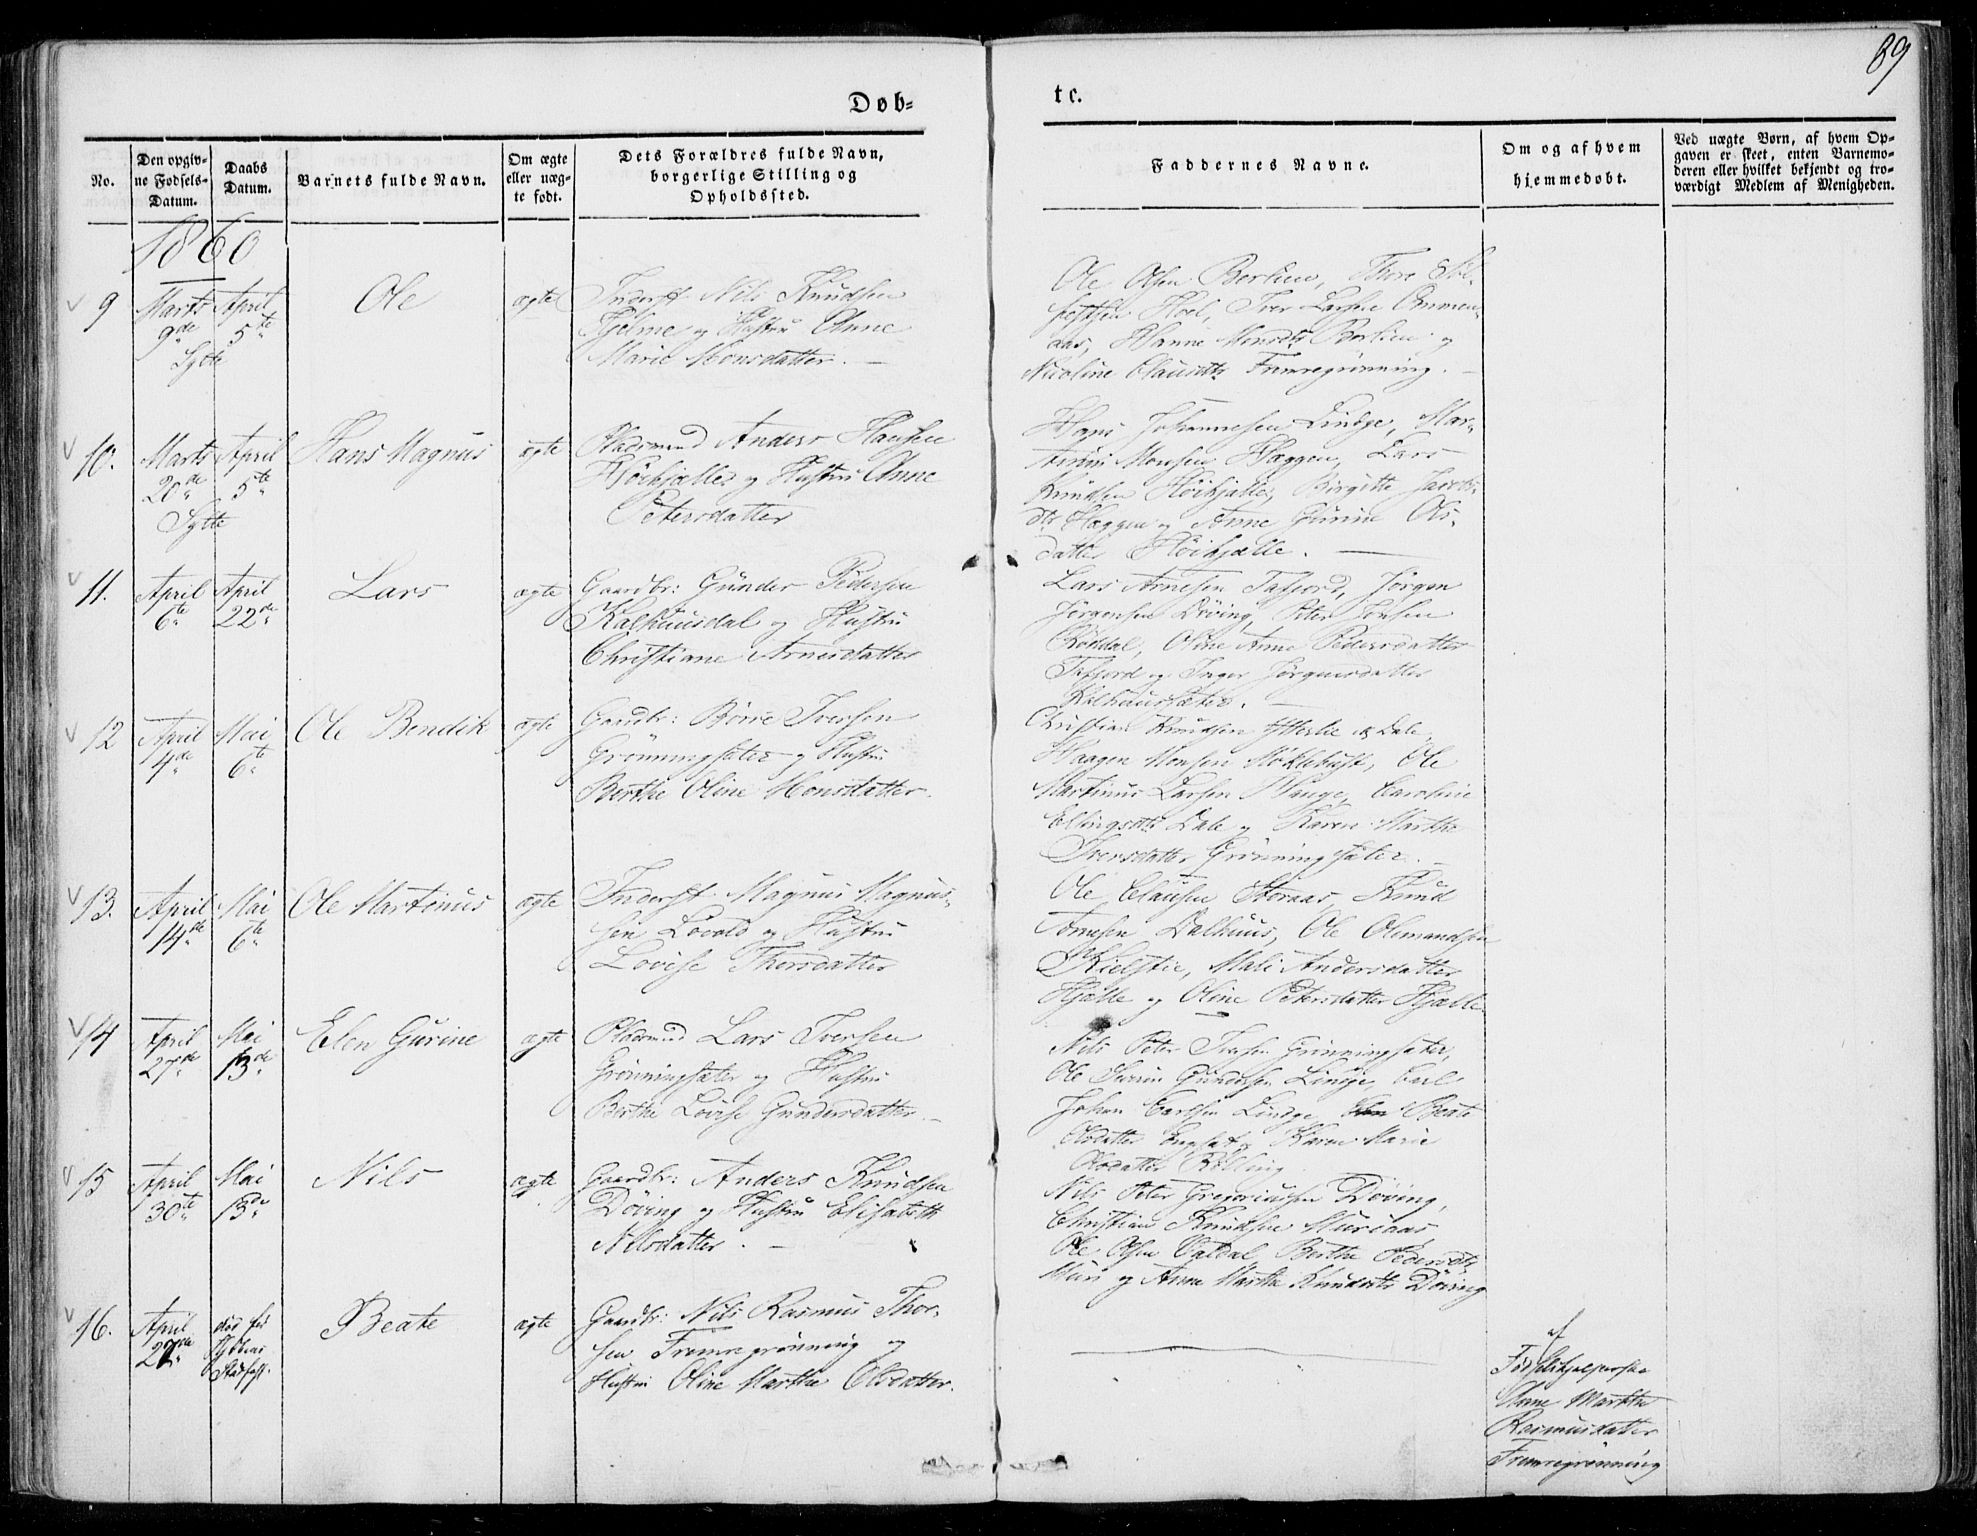 89
Døb=
tc.
No.
Den opgiv-
ne Fødsels-
Datum.
Daabs
Datum.
Barnets fulde Navn.
Om ægte
eller uæg-
te født.
Dets Forældres fulde Navn,
borgerlige Stilling og
Opholdssted.
Faddernes Navne.
Om og af hvem
hjemmedøbt.
Ved uægte Børn, af hvem Op-
gaven er skeet, enten Barnemo-
deren eller hvilket bekjendt og tro-
værdigt Medlem af Menigheden.
1860
9
Marts
9de
Sylte
April
5te
Ole
ægte
Inderst Nils Knudsen
Hjelme og Hustru Anne
Marie Monsdatter.
Ole Olsen Berlien, Thore
Hoel, Iver Larsen Ommen-
aas, Hanne Monsdtr Berlien og
Nicoline Clausdtr Fremregrønning.
10.
Marts
20de
Sylte
April
5te
Hans Magnus
ægte
Pladsmand Anders Hansen
Høihjelle og Hustru Anne
Petersdatter
Hans Johannesen Lindge, Mar-
Monsen Hæggen, Lars
Knudsen Høihjelle, Birgitte Jacobs-
dtr Hæggen og Anne Gurine Ols-
datter Høihjelle.
11.
April
6te
April
22de
Lars
ægte
Gaardbr: Gunder Pedersen
Kalhuusdal og Hustru
Christiane Arnesdatter
Lars Arnesen Tafjord, Jørgen
Jørgensen Døving, Peter Johsen
Røddal, Oline Anne Pedersdatter
Tafjord og Inger Jørgensdatter
Kalhuussæter.
12
April
4de
Mai
6te
Ole Bendik
ægte
Gaardbr: Børre Iversen
Grønningsæter og Hustru
Berthe Oline Monsdatter.
Christian Knudsen Dale,
Haagen Monsen Møklebust, Ole
Martinus Larsen Hauge, Caroline
Ellingsdtr Dale og Karen Marthe
Iversdatter Grønningsæter.
13.
April
14de
Mai
6te
Ole Martinus
ægte
Inderst Magnus Magnus-
sen Løvold og Hustru
Lovise Thorsdatter
Ole Clausen Storaas, Knud
Arnesen Dalhuus, Ole Olemandsen
Mali Andersdatter
Hjelle og Oline Petersdatter Hjelle
14
April
27de
Mai
13de
Elen Gurine
ægte
Pladsmand Lars Iversen
Grønningsæter og Hustru
Berthe Lovise Gundersdatter.
Nils Peter Iversen Grønningsæter,
Ole Gundersen Linge, Carl
Johan Carlsen Lindge, Beate
Olsdatter Engeset og Karen Marie
Olsdatter Rølling
15
April
30te
Mai
13de
Nils
ægte
Gaardbr: Anders Knudsen
Døving og Hustru Elisabeth
Nilsdatter.
Nils Peter Gregoriussen Døving,
Christian Knudsen Muriaas,
Ole Olsen Valdal, Berthe Pedersdtr
Muri og Anne Marthe Knudsdtr Døving
16.
April
27de
død før
Stadfæst.
Beate
ægte
Gaardbr: Nils Rasmus Thor-
sen Fremregrønning og
Hustru Oline Marthe Olsdatter.
af
Fødselshjelperske
Anne Marthe
Rasmusdatter
Fremregrønning